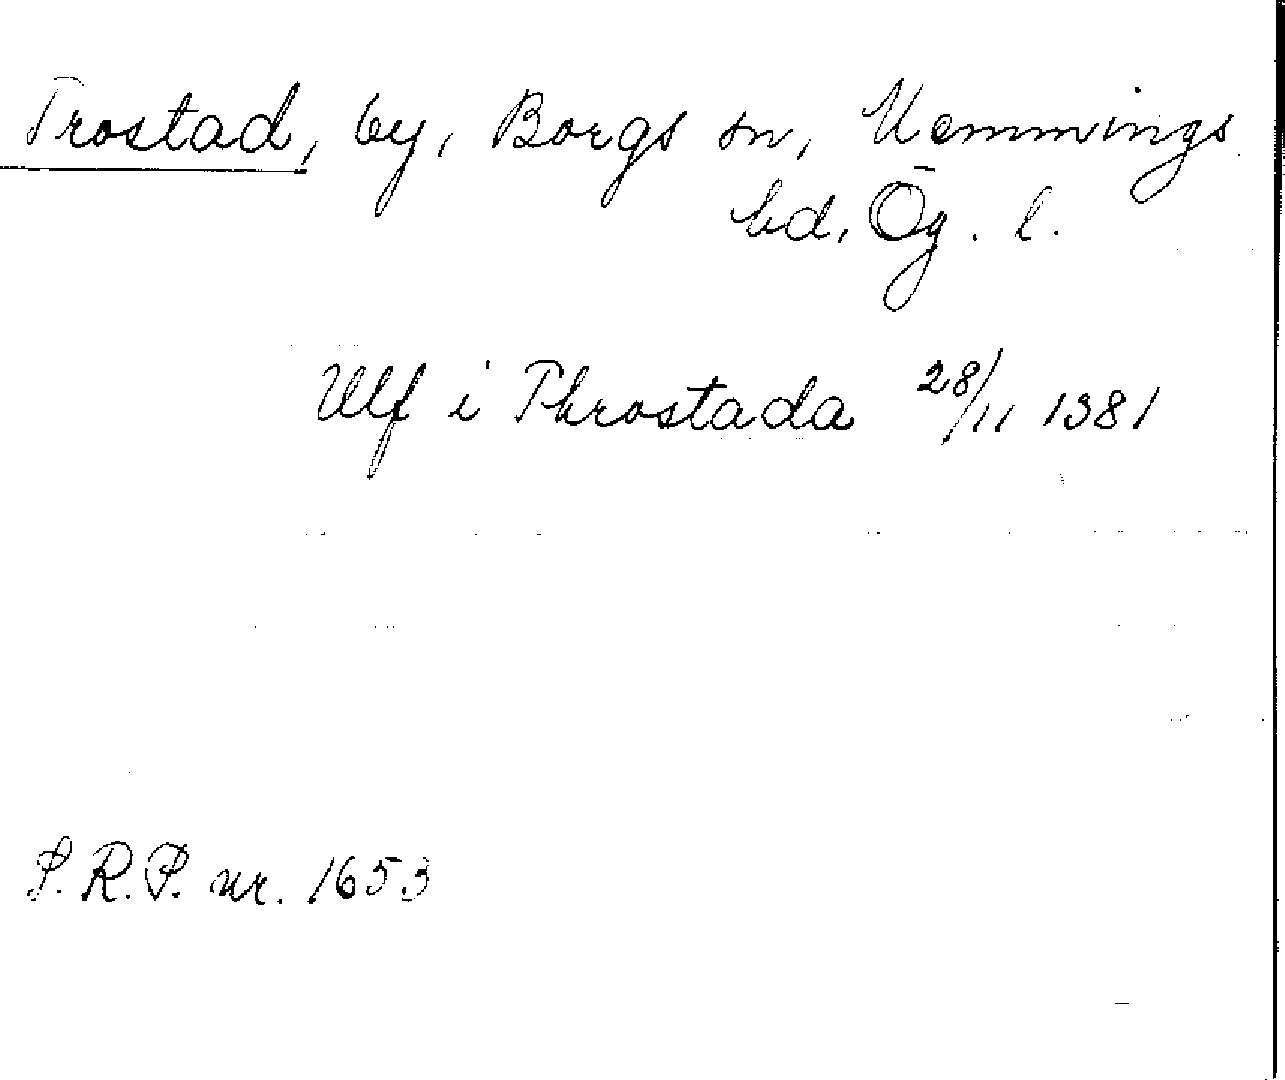 Trostad, by, Borgs sn, Memmings
hd, Ög. l.
Ulf i Throstada 28/11 1381
S.R.P. nr. 1653